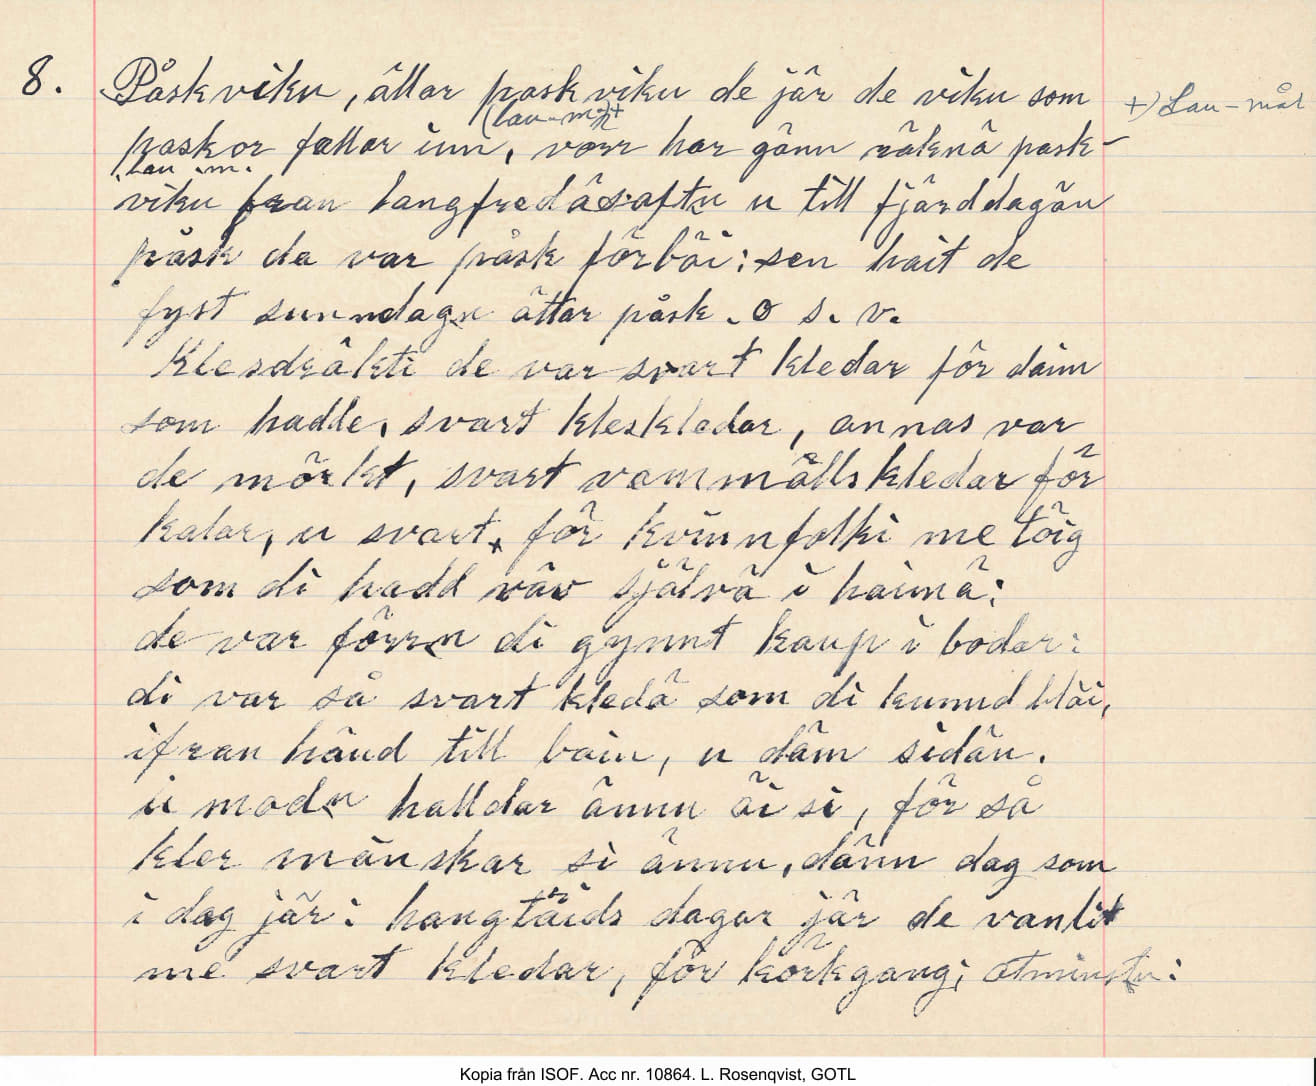 8. Påskviku, ällar paskviku de jär de viku som +) Lau-mål
(Lau-mål)+
paskor fallar inn, vörr har gänn räknä pask-
Lau-m.
viku fran langfredäsaftn u till fjärddagän
påsk da var påsk förbäi: sen hait de
fyst sunndagn ättar påsk. o s. v.
Klesdräkti de var svart kledar för daim
som hadde, svart kleskledar, annas var
de mörkt, svart vammälls kledar för
kalar, u svart, för kvinnfolki me töig
som di hadd väv självä i haimä:
de var förrn di gynnt kaup i bodar:
di var så svart kledä som di kunnd bläi,
ifran häud till bain, u däm sidän.
u modn halldar ännu äi si, för så
kler mänskar si ännu, dänn dag som
i dag jär: haugtäids dagar jär de vanlit
me svart kledar, för körkgang; atminstn:
Kopia från ISOF. Acc nr. 10864. L. Rosenqvist, GOTL